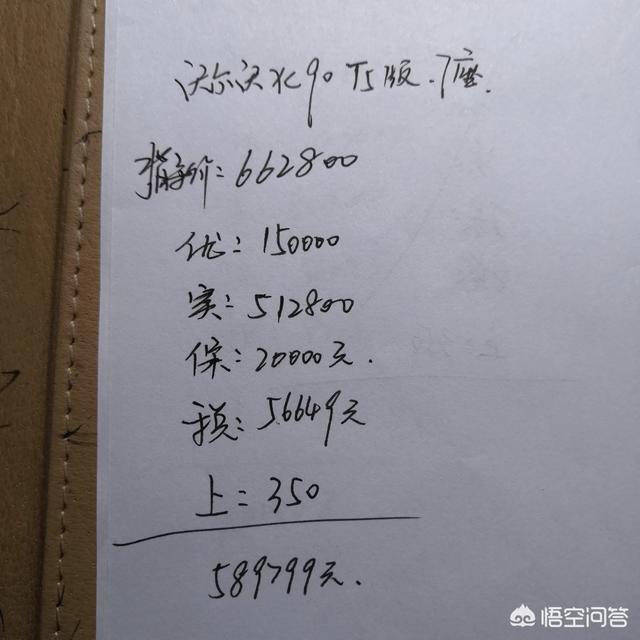 沃尔沃XC90 T5版.7座.
指导价:662800
优:150000
实:512800
保:20000元.
税:56649元
上:350
589799元.
悟空问答